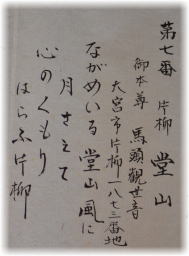 第七番 片柳 堂山
御本尊 馬頭觀世音
大宮市片柳一八七三番地
ながめいる堂山風に
月さえて
心のくもり
はらふ片柳